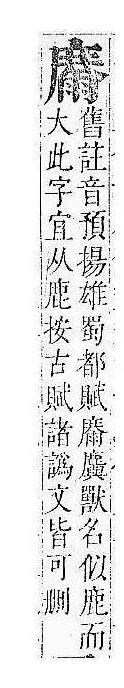 舊註音預揚雄蜀都賦獸名似鹿而
大此字宜从鹿按古賦諸譌文皆可刪